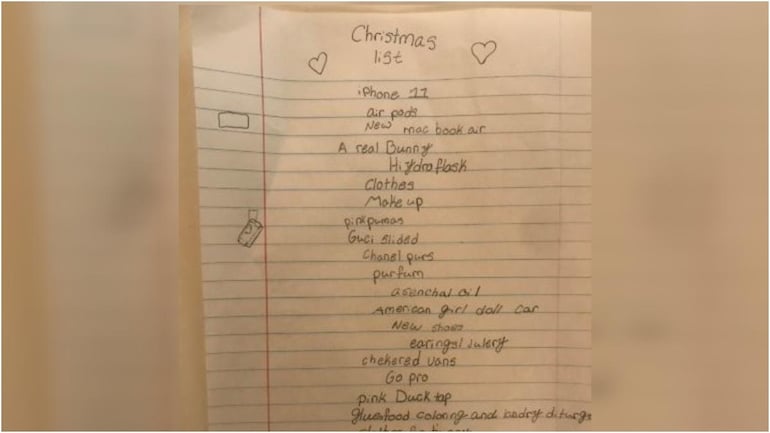 Christmas
list
iPhone 11
air pods
New mac book air
A real Bunny
Hiydroflask
Clothes
Make up
pink pumas
Guci slided
Chanel purs
purfum
asenchal oil
American girl doll car
New shoes
earings/ julery
chekered vans
Go pro
pink Duck tap
glue food coloring and londry diturgs